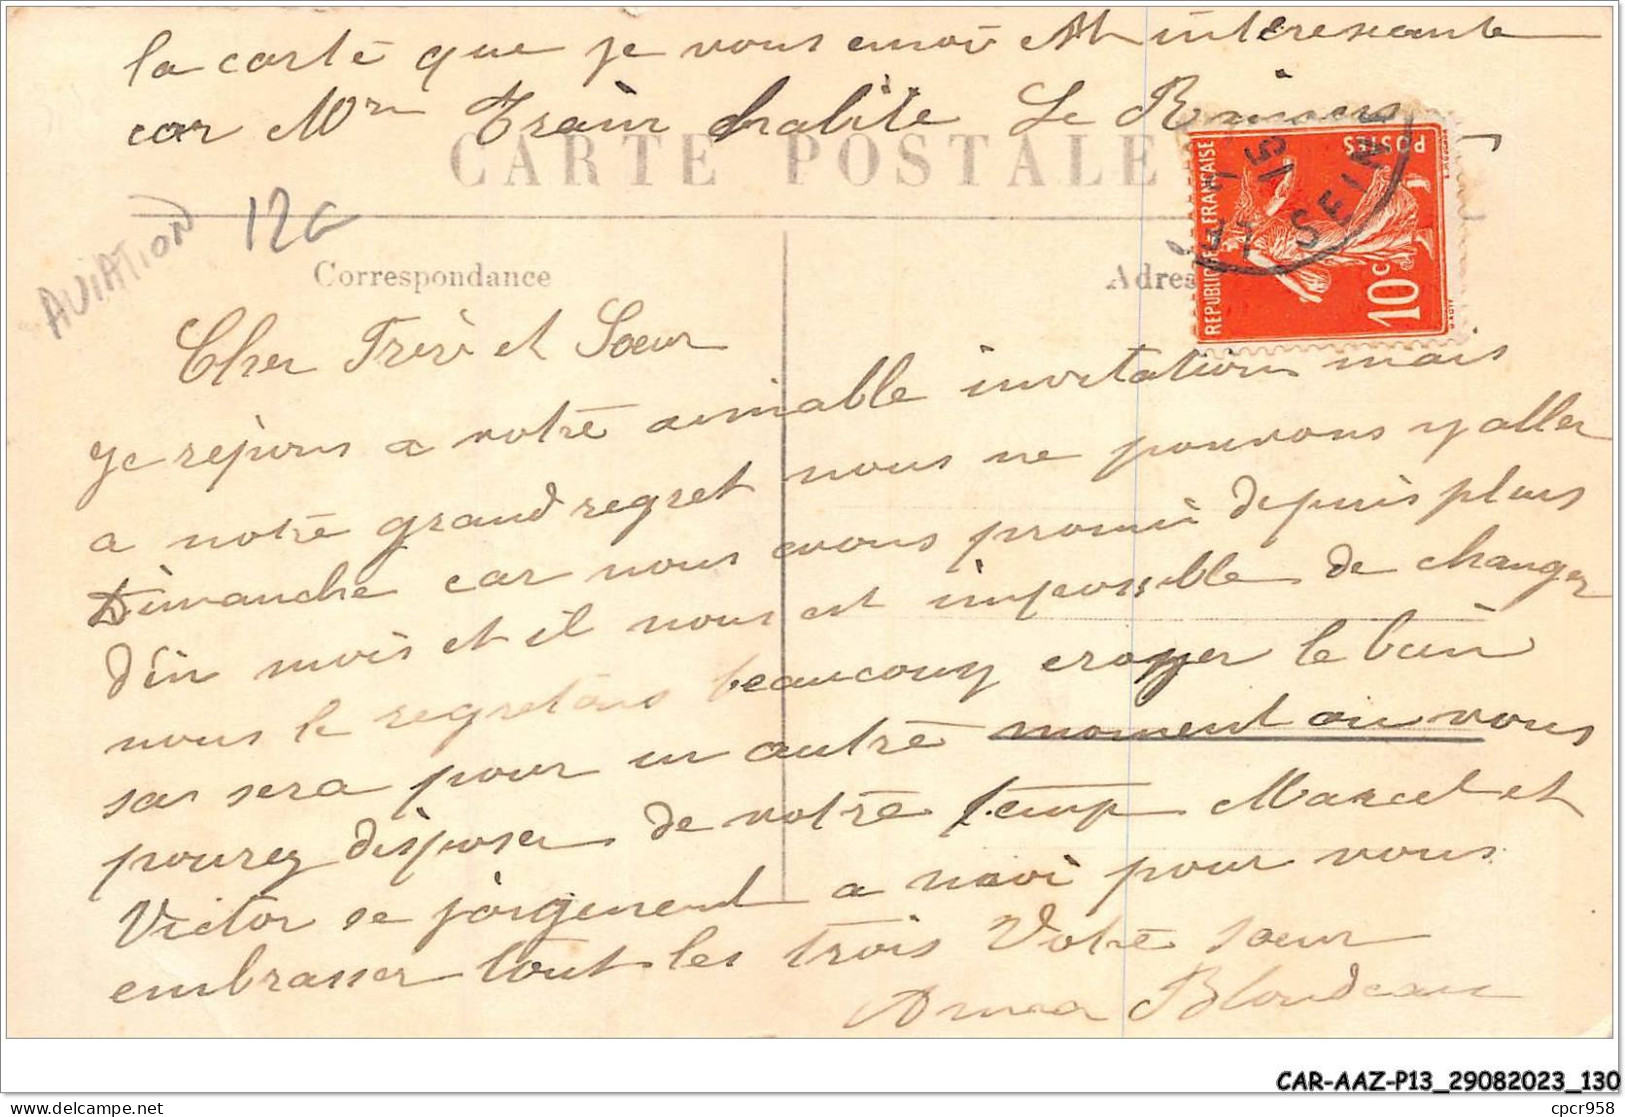 la carte que je vous envoi est intéressante
car Mr Train habite Le Raincy
CARTE POSTALE
AVIATION
12G
Correspondance
Adres
REPUBLIQUE FRANCAISE
POSTES
10c
SEINE
Cher Frère et Soeur
Je répons a votre aimable invitation mais
a notre grand regret nous ne pouvons y aller
Dimanche car nous avons promis depuis plus
d'in mois et il nous est impossible de changer
nous le regretons beaucoup croyer le bien
sas sera pour un autre moment ou vous
pourez disposer de votre temp Marcel et
Victor se joigenent a moi pour vous
embrasser tout les trois Votre soeur
Blondeau
CAR-AAZ-P13_29082023_130
cpcr958